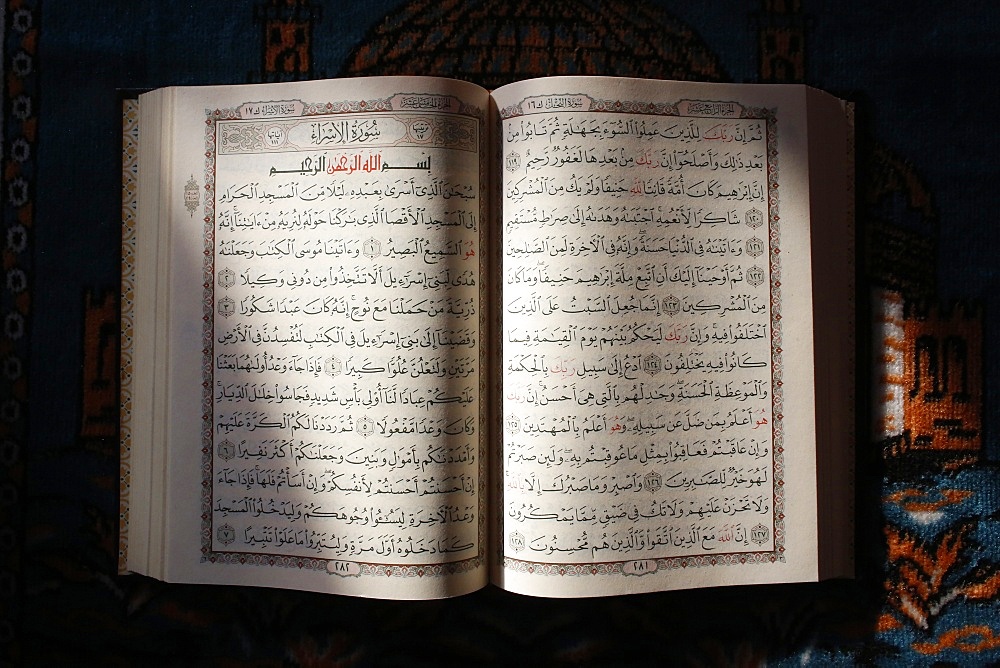 الجزء الرابع عشر سُورَةُ النَّحْلِ ك ١٦
ثُمَّ إِنَّ رَبَّكَ لِلَّذِينَ عَمِلُوا۟ ٱلسُّوٓءَ بِجَهَٰلَةٍ ثُمَّ تَابُوا۟ مِنۢ
بَعْدِ ذَٰلِكَ وَأَصْلَحُوٓا۟ إِنَّ رَبَّكَ مِنۢ بَعْدِهَا لَغَفُورٌ رَّحِيمٌ ١١٩
إِنَّ إِبْرَٰهِيمَ كَانَ أُمَّةً قَانِتًا لِّلَّهِ حَنِيفًا وَلَمْ يَكُ مِنَ ٱلْمُشْرِكِينَ
١٢٠ شَاكِرًا لِّأَنْعُمِهِ ٱجْتَبَىٰهُ وَهَدَىٰهُ إِلَىٰ صِرَٰطٍ مُّسْتَقِيمٍ
١٢١ وَءَاتَيْنَٰهُ فِى ٱلدُّنْيَا حَسَنَةً وَإِنَّهُۥ فِى ٱلْءَاخِرَةِ لَمِنَ ٱلصَّٰلِحِينَ
١٢٢ ثُمَّ أَوْحَيْنَآ إِلَيْكَ أَنِ ٱتَّبِعْ مِلَّةَ إِبْرَٰهِيمَ حَنِيفًا وَمَا كَانَ
مِنَ ٱلْمُشْرِكِينَ ١٢٣ إِنَّمَا جُعِلَ ٱلسَّبْتُ عَلَى ٱلَّذِينَ
ٱخْتَلَفُوا۟ فِيهِ وَإِنَّ رَبَّكَ لَيَحْكُمُ بَيْنَهُمْ يَوْمَ ٱلْقِيَٰمَةِ فِيمَا
كَانُوا۟ فِيهِ يَخْتَلِفُونَ ١٢٤ ٱدْعُ إِلَىٰ سَبِيلِ رَبِّكَ بِٱلْحِكْمَةِ
وَٱلْمَوْعِظَةِ ٱلْحَسَنَةِ وَجَٰدِلْهُم بِٱلَّتِى هِىَ أَحْسَنُ إِنَّ رَبَّكَ
هُوَ أَعْلَمُ بِمَن ضَلَّ عَن سَبِيلِهِۦ وَهُوَ أَعْلَمُ بِٱلْمُهْتَدِينَ ١٢٥
وَإِنْ عَاقَبْتُمْ فَعَاقِبُوا۟ بِمِثْلِ مَا عُوقِبْتُم بِهِۦ وَلَئِن صَبَرْتُمْ
لَهُوَ خَيْرٌ لِّلصَّٰبِرِينَ ١٢٦ وَٱصْبِرْ وَمَا صَبْرُكَ إِلَّا بِٱللَّهِ
وَلَا تَحْزَنْ عَلَيْهِمْ وَلَا تَكُ فِى ضَيْقٍ مِّمَّا يَمْكُرُونَ
١٢٧ إِنَّ ٱللَّهَ مَعَ ٱلَّذِينَ ٱتَّقَوا۟ وَّٱلَّذِينَ هُم مُّحْسِنُونَ ١٢٨
٢٨١
الجزء الخامس عشر سُورَةُ الإِسْرَاءِ ك ١٧
ترتيبها ١٧ سُورَةُ الإِسْرَاءِ آياتها ١١١
بِسْمِ ٱللَّهِ ٱلرَّحْمَٰنِ ٱلرَّحِيمِ
سُبْحَٰنَ ٱلَّذِىٓ أَسْرَىٰ بِعَبْدِهِۦ لَيْلًا مِّنَ ٱلْمَسْجِدِ ٱلْحَرَامِ
إِلَى ٱلْمَسْجِدِ ٱلْأَقْصَا ٱلَّذِى بَٰرَكْنَا حَوْلَهُۥ لِنُرِيَهُۥ مِنْ ءَايَٰتِنَآ إِنَّهُۥ
هُوَ ٱلسَّمِيعُ ٱلْبَصِيرُ ١ وَءَاتَيْنَا مُوسَى ٱلْكِتَٰبَ وَجَعَلْنَٰهُ
هُدًى لِّبَنِىٓ إِسْرَٰٓءِيلَ أَلَّا تَتَّخِذُوا۟ مِن دُونِى وَكِيلًا ٢
ذُرِّيَّةَ مَنْ حَمَلْنَا مَعَ نُوحٍ إِنَّهُۥ كَانَ عَبْدًا شَكُورًا ٣
وَقَضَيْنَآ إِلَىٰ بَنِىٓ إِسْرَٰٓءِيلَ فِى ٱلْكِتَٰبِ لَتُفْسِدُنَّ فِى ٱلْأَرْضِ
مَرَّتَيْنِ وَلَتَعْلُنَّ عُلُوًّا كَبِيرًا ٤ فَإِذَا جَآءَ وَعْدُ أُولَىٰهُمَا بَعَثْنَا
عَلَيْكُمْ عِبَادًا لَّنَآ أُو۟لِى بَأْسٍ شَدِيدٍ فَجَاسُوا۟ خِلَٰلَ ٱلدِّيَارِ
وَكَانَ وَعْدًا مَّفْعُولًا ٥ ثُمَّ رَدَدْنَا لَكُمُ ٱلْكَرَّةَ عَلَيْهِمْ
وَأَمْدَدْنَٰكُم بِأَمْوَٰلٍ وَبَنِينَ وَجَعَلْنَٰكُمْ أَكْثَرَ نَفِيرًا ٦
إِنْ أَحْسَنتُمْ أَحْسَنتُمْ لِأَنفُسِكُمْ وَإِنْ أَسَأْتُمْ فَلَهَا فَإِذَا جَآءَ
وَعْدُ ٱلْءَاخِرَةِ لِيَسُۥٓـُٔوا۟ وُجُوهَكُمْ وَلِيَدْخُلُوا۟ ٱلْمَسْجِدَ
كَمَا دَخَلُوهُ أَوَّلَ مَرَّةٍ وَلِيُتَبِّرُوا۟ مَا عَلَوْا۟ تَتْبِيرًا ٧
٢٨٢